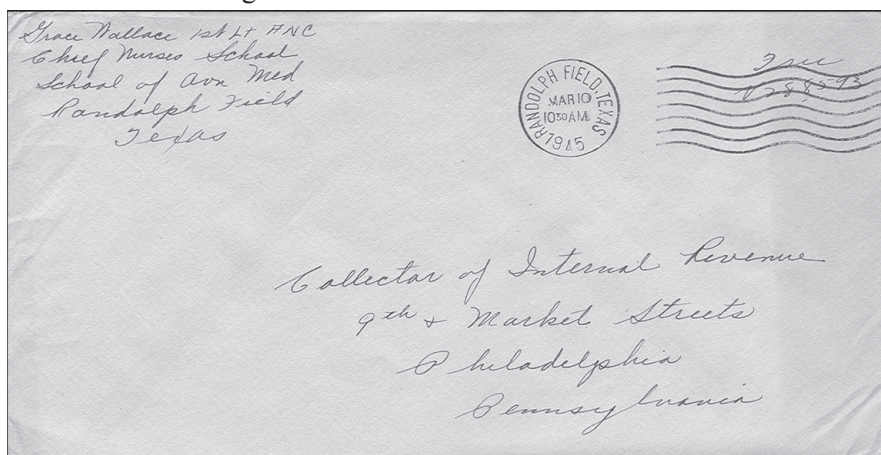 Grace Wallace 1st Lt ANC
Chief Nurses School
School of Avn Med
Randolph Field
Texas
RANDOLPH FIELD, TEXAS
MAR 10
10 30 AM
1945
Free
Collector of Internal Revenue
9th + Market Streets
Philadelphia
Pennsylvania